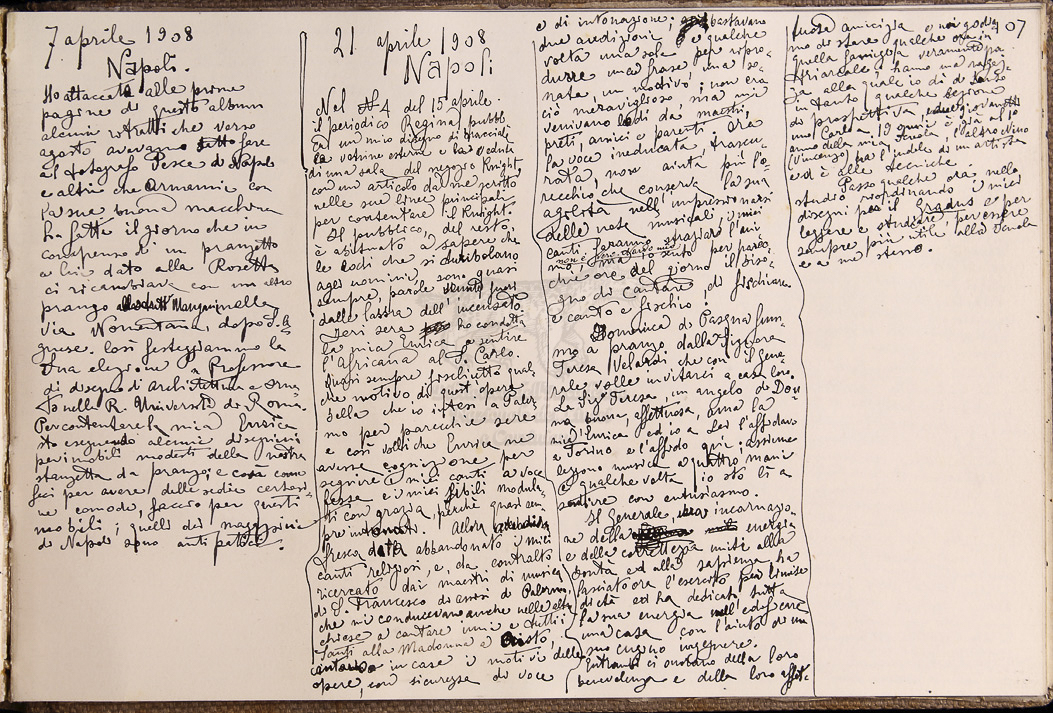 7 aprile 1908
Napoli.
Ho attaccato alle prime
pagine di questo album
alcuni ritratti che verso
agosto avevamo fatto fare
al fotografo Pesce di Napoli
e altri che Armenise con
la sua buona macchina
ha fatto il giorno che in
compenso di un pranzetto
a lui dato alla Rosetta
ci ricambiava con un altro
pranzo alla
via Nomentana, dopo S. A
gnese. Così festeggiammo la
sua elezione a Professore
di disegno di architettura e Orna
to nella R. Università di Roma.
Per contentare la mia Enrica
sto eseguendo alcuni disegnini
per mobili modesti della nostra
stanzetta da pranzo; e così come
feci per avere delle sedie certosi-
ne comode, faccio per questi
mobili; quelli dei magazzini
di Napoli sono antipatici.
21 aprile 1908
Napoli
Nel N 4 del 15 aprile.
il periodico Regina pubbli
ca un mio disegno di bracciali
la vetrine esterna e la veduta
di una sala del negozio Knight
con un articolo da me scritto
nelle sue linee principali
per contentare il Knight.
Il pubblico, del resto,
è abituato a sapere che
le lodi che si attribolano
agli uomini, sono quasi
sempre, parole venute fuori
dalla tassa dell'incensato.
Ieri sera ho condotta
la mia Enrica a sentire
l'Africana al S. Carlo.
Quasi sempre fischietto qual
che motivo di quest'opera
bella che io intesi a Paler
mo per parecchie sere
e così volli che Enrica ne
avesse cognizione per
seguire i miei canti a voce
bassa e i miei fischi modula
ti con grazia, perchè quasi sem
pre intonati. Allora
fresco dall'abbandonato i miei
canti religiosi, e, da contralto
ricercato dai maestri di musica
di S. Francesco di Assisi di Palermo
che mi conducevano anche nelle altre
chiese a cantare inni e tutti i
santi alla Madonna e Cristo,
cantavo in casa i motivi delle
opere, con sicurezza di voce
e di intonazione; bastavano
due audizioni e qualche
volta una sola per ripro-
durre una frase, una so-
nata, un motivo; non era
ciò meraviglioso, ma mi
venivano lodi da maestri,
preti, amici e parenti. Ora
la voce ineducata, trascu-
rata, non aiuta più l'o-
recchio che conserva la sua
agilità nell'impressionarsi
delle note musicali, i miei
canti faranno strappare l'ani
mo, ma io sento per parec
chie ore del giorno il biso-
gno di cantare, di fischiare
e canto e fischio!
Domenica di Pasqua fum-
mo a pranzo dalla Signora
Teresa Velardi che con il Gene-
rale volle invitarci a casa loro.
La Sig.ra Teresa, un angelo di Don-
na buona, affettuosa, ama la
mia Enrica, ed io a Lei l'affidavo
a Torino e l'affido qui: assieme
leggono musica a quattro mani
e qualche volta io sto lì a
sentire con entusiasmo.
Il Generale, vera incarnazio
ne della energia
e della correttezza unite alla
bontà ed alla sapienza, ha
lasciato ora l'esercito per limite
di età ed ha dedicato tutta
la sua energia nell'edificare
una casa con l'aiuto di un
suo cugino ingegnere.
Entrambi ci onorano della loro
benevolenza e della loro affet-
tuosa amicizia e noi godia
mo di stare qualche ora in
quella famiglia veramente pa
triarcale; hanno una ragaz-
za alla quale io do di tanto
in tanto qualche lezione
di prospettiva, e due giovanotti
uno Carlo, 19 anni è già al 1o
anno della mia Scuola, l'altro Nino
(Vincenzo) ha l'indole di un artista
ed è alle tecniche.
Passo qualche ora nello
studio riordinando i miei
disegni per il Gradus e per
leggere e studiare, per essere
sempre più utile alla Scuola
e a me stesso.
107